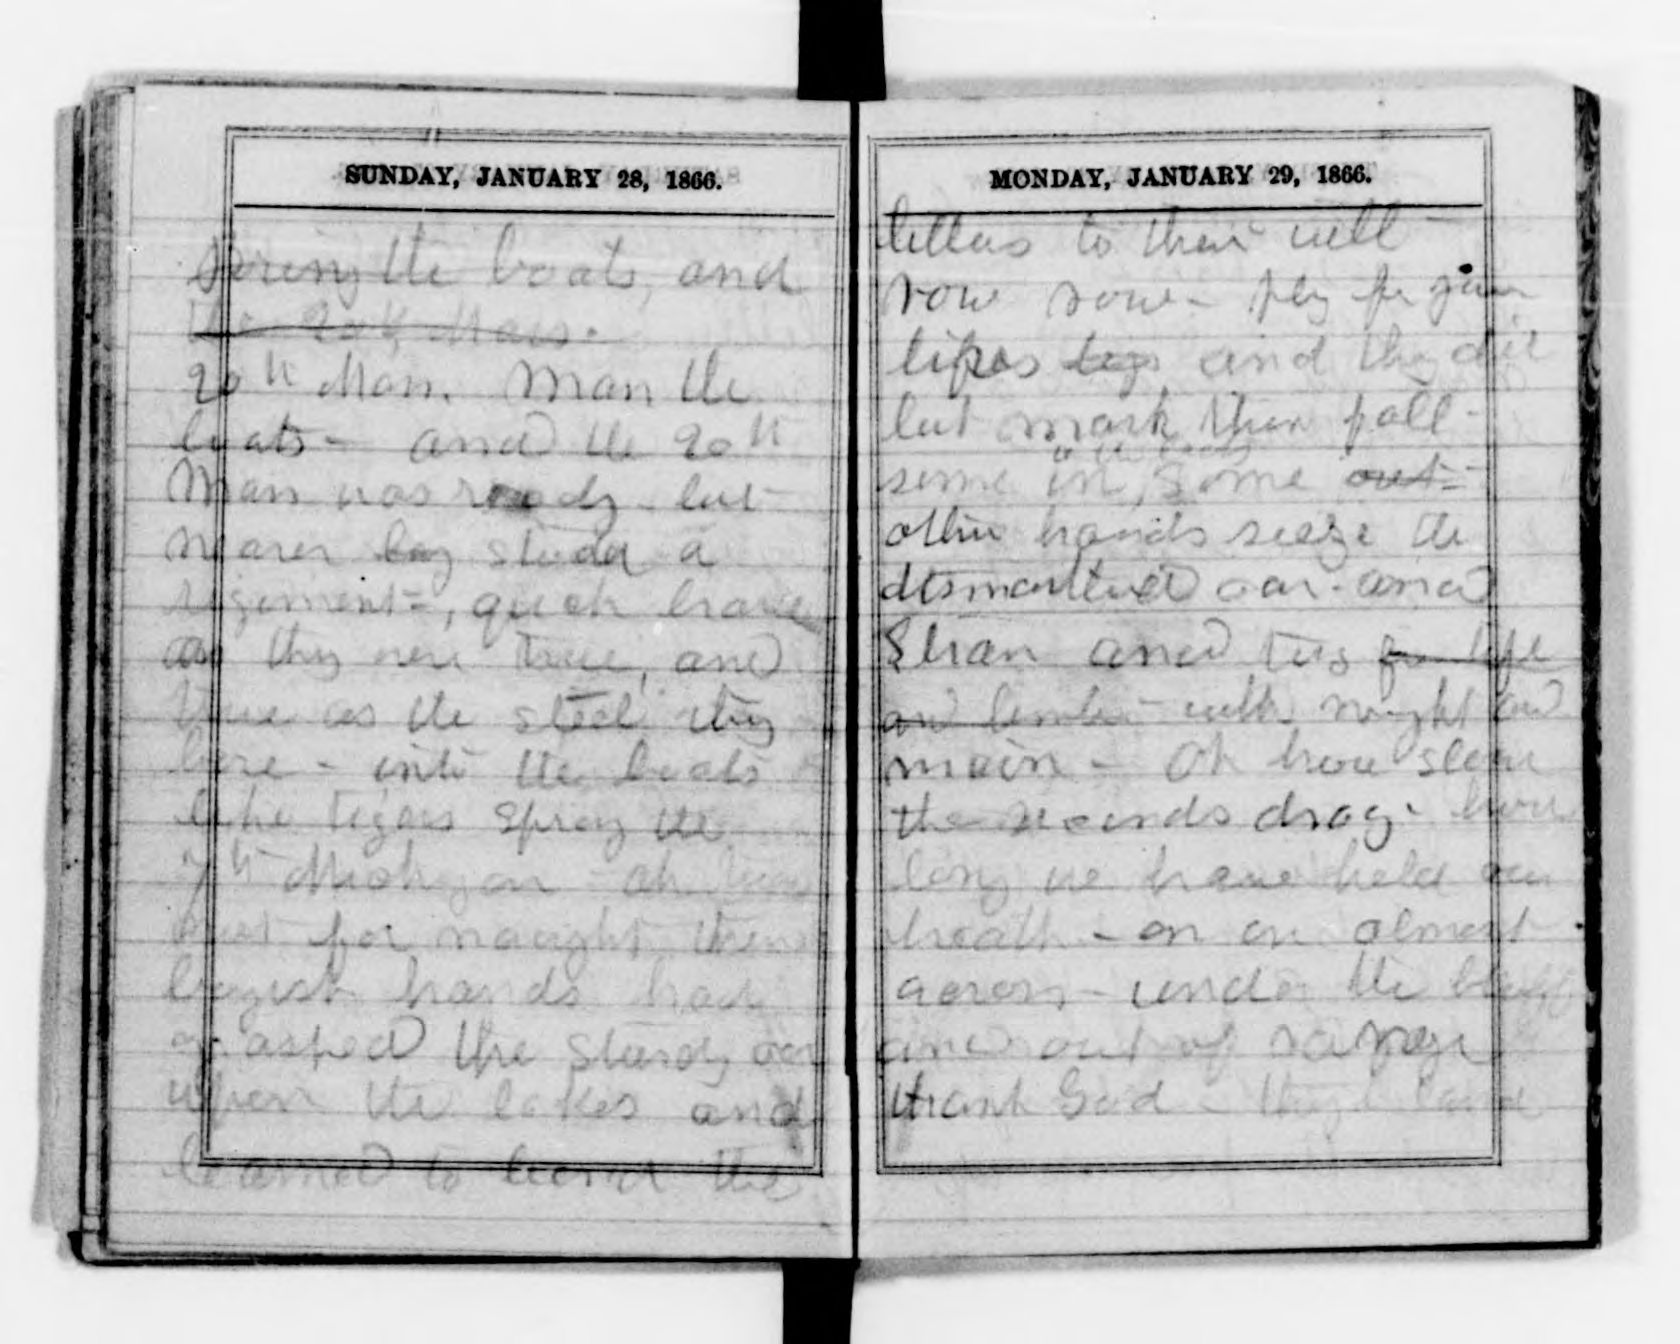 SUNDAY, JANUARY 28, 1866.
spring the boats, and
the 20th Mass.
20th Mass. Man the
boats - and the 20th
Mass was ready - but
nearer by stood a
regiment -, quick brave
as they were true, and
true as the steel they
bore - into the boats
like tigers sprang the
7th Michigan - ah
not for naught their
hands had
grasped the sturdy oar
upon the lakes and
learned to bend the
MONDAY, JANUARY 29, 1866.
billows to their will -
row row - ply for your
lifes legs and they did
but mark them fall -
in the boats
some in some out -
other hands seize the
dismantled oar - and
Strain and tug for life
and limb - with might and
main - Oh how slow
the seconds drag - how
long we have held our
breath - on on almost
across - under the bluff
and out of range
thank God - they land